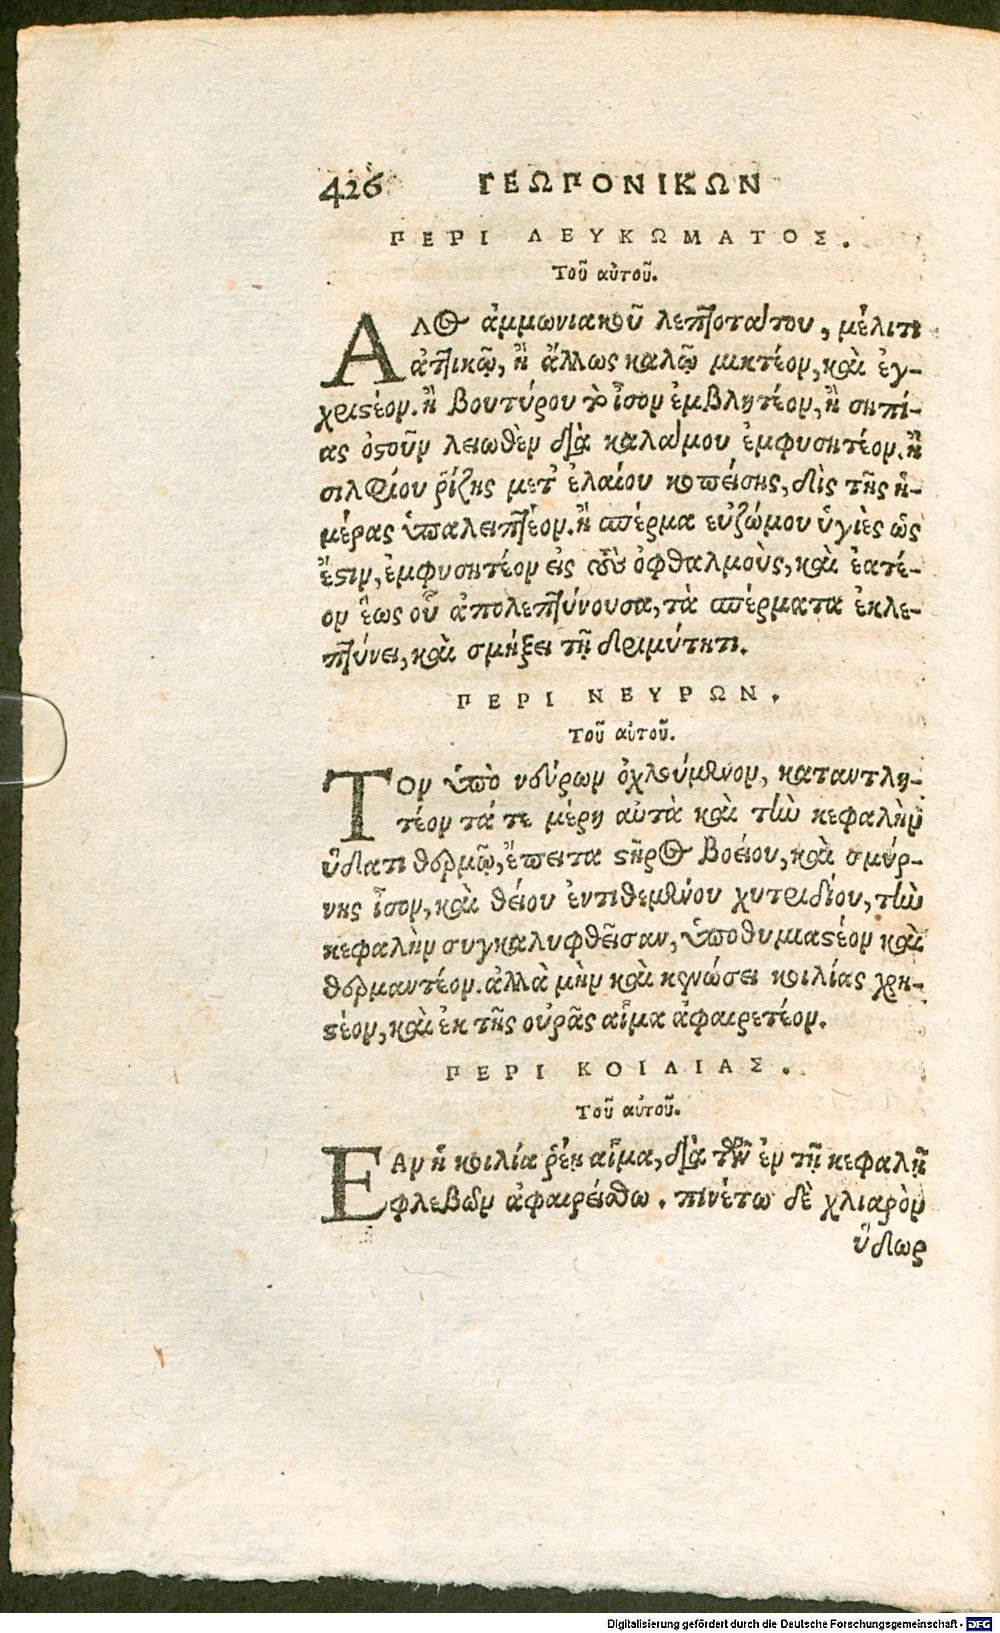 426 ΓΕΩΠΟΝΙΚΩΝ
ΠΕΡΙ ΛΕΥΚΩΜΑΤΟΣ.
Τοῦ αὐτοῦ.
ΑΛὸς ἀμμωνιακοῦ λεπτοτάτου, μέλιτι
ἀττικῷ, ἢ ἄλλως καλῷ μικτέον, καὶ ἐγ-
χριστέον. ἢ βουτύρου τὸ ἶσον ἐμβλητέον, ἢ σηπί-
ας ὀστοῦν λειωθὲν διὰ καλάμου ἐμφυσητέον. ἢ
σιλφίου ῥίζης μετ' ἐλαίου κοπείσης, δὶς τῆς ἡ-
μέρας ὑπαλειπτέον. ἢ σπέρμα εὐζώμου ὑγιὲς ὥς
ἔστιν, ἐμφυσητέον εἰς τοὺς ὀφθαλμοὺς, καὶ ἐατέ-
ον ἕως οὗ ἀπολεπτύνουσα, τὰ σπέρματα ἐκλε-
πτύνει, καὶ σμήξει τῇ δριμύτητι.
ΠΕΡΙ ΝΕΥΡΩΝ.
Τοῦ αὐτοῦ.
ΤΟν ὑπὸ νεύρων ὀχλούμενον, καταντλη-
τέον τά τε μέρη αὐτὰ καὶ τὴν κεφαλὴν
ὕδατι θερμῷ, ἔπειτα στῆρος βοείου, καὶ σμύρ-
νης ἶσον, καὶ θείου ἐντιθεμένου χυτριδίου, τὴν
κεφαλὴν συγκαλυφθεῖσαν, ὑποθυμιαστέον καὶ
θερμαντέον. ἀλλὰ μὴν καὶ κενώσει κοιλίας χρη-
στέον, καὶ ἐκ τῆς οὐρᾶς αἷμα ἀφαιρετέον.
ΠΕΡΙ ΚΟΙΛΙΑΣ.
Τοῦ αὐτοῦ.
ΕΑν ἡ κοιλία ῥέῃ αἷμα, διὰ τῶν ἐν τῇ κεφαλῇ
φλεβῶν ἀφαιρείσθω. πινέτω δὲ χλιαρὸν
ὕδωρ
Digitalisierung gefördert durch die Deutsche Forschungsgemeinschaft - DFG